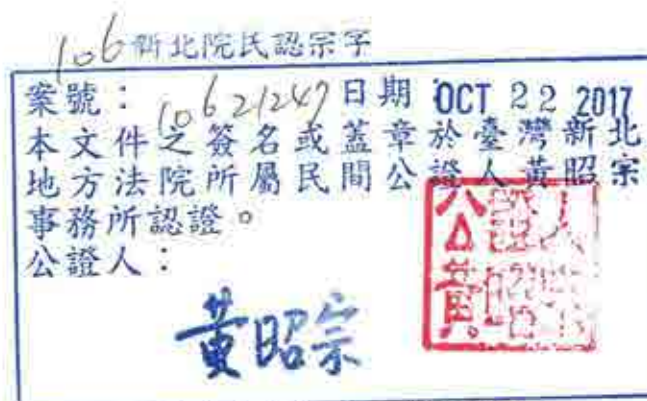 106新北院民認宗字
案號：10621247日期：OCT 22 2017
本文件之簽名或蓋章於臺灣新北
地方法院所屬民間公證人黃昭宗
事務所認證。
公證人：
公證人
黃昭宗
黃昭宗